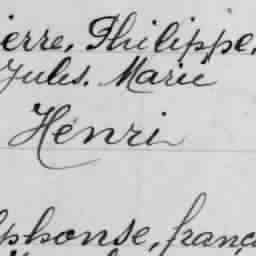 ierre, Philippe,
Jules. Marie
Henri
lphonse, franç